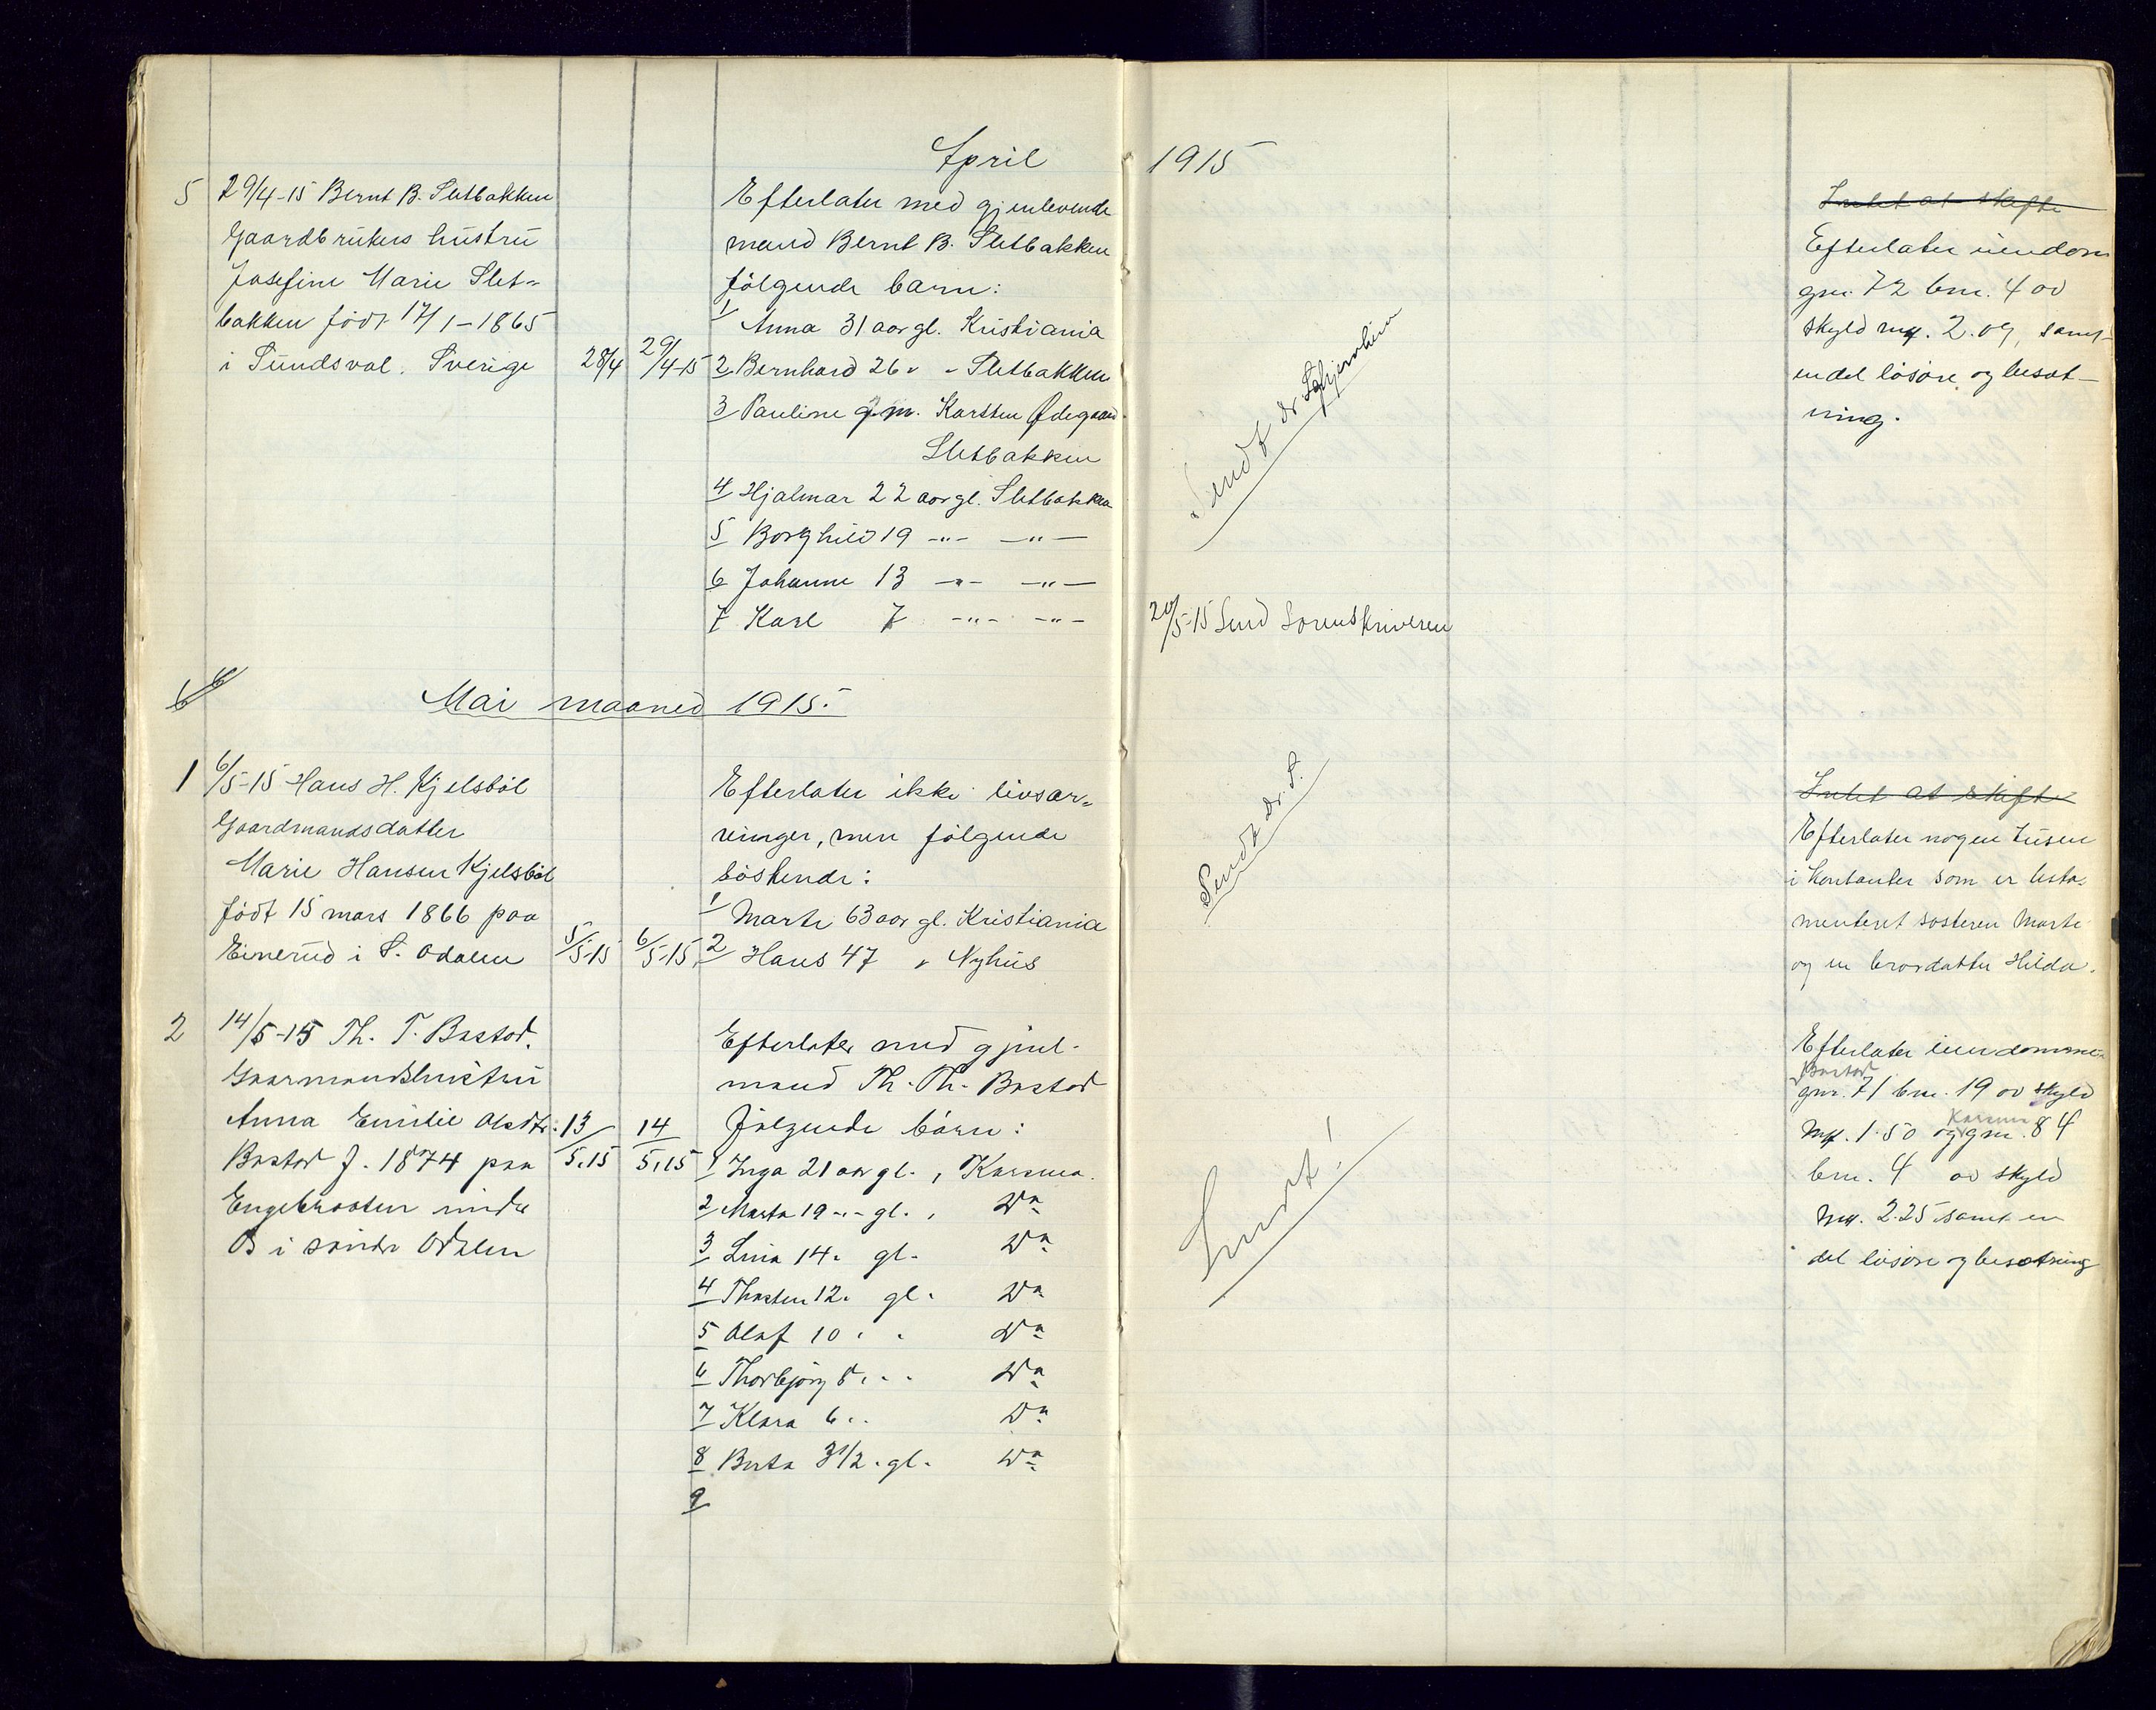 April 1915
5 29/4-15 Bernt B. Sletbakken
Gaardbrukers hustru
Josefine Marie Slet-
bakken født 17/1-1865
i Sundsval. Sverige 28/4 29/4-15
Efterlater med gjenlevende
mand Bernt B. Sletbakken
følgende barn:
1/ Anna 31 aar gl. Kristiania
2 Bernhard 26 " " Sletbakken
3 Pauline gm. Karsten Ødegaard
Sletbakken
4 Hjalmar 22 aar gl. Sletbakken
5 Borghild 19 -"- -"-
6 Johanne 13 -"- -"-
7 Karl 7 -"- -"-
Sendt dr.
20/5-15 Send Sorenskriveren
Intet at skifte
Efterlater eiendom
gnr. 72 bnr. 4 av
skyld mrk. 2.09, samt
endel løsøre og besæt-
ning.
6
Mai maaned 1915.
1 6/5-15 Hans H. Kjelsbøl
Gaardmandsdatter
Marie Hansen Kjelsbøl
født 15 mars 1866 paa
Einerud i S. Odalen 5/5-15 6/5-15
Efterlater ikke livsar-
vinger, men følgende
søskende:
1/ Marte 63 aar gl. Kristiania
2 Hans 47 " Nyhus
Sendt dr. S.
Intet at skifte
Efterlater nogen tusen
i kontanter som er testa-
menteret søsteren Marte
og en brordatter Hilda.
2 14/5-15 Th. T. Bastad.
Gaarmandshustru
Anna Emilie Olsdtr. 13/5.15 14/5.15
Bastad f. 1874 paa
Engebraaten nindre
Os i søndr Odalen
Efterlater med gjenl.
mand Th. Th. Bastad
følgende børn:
1 Inga 21 aar gl., Karsmo.
2 Marta 19 -"- gl., Do
3 Lina 14 " gl. Do
4 Thorsten 12 " gl. Do
5 Olaf 10 " " Do
6 Thorbjørg 8 " " Do
7 Klara 6 " " Do
8 Berta 3 1/2 " gl. Do
9
Sendt!
Efterlater eiendommen
Bastad
gnr. 71 bnr. 19 av skyld
Karsmo
Mrk. 1.50 og gnr. 84
bnr. 4 av skyld
Mrk. 2.25 samt en
del løsøre og besætning